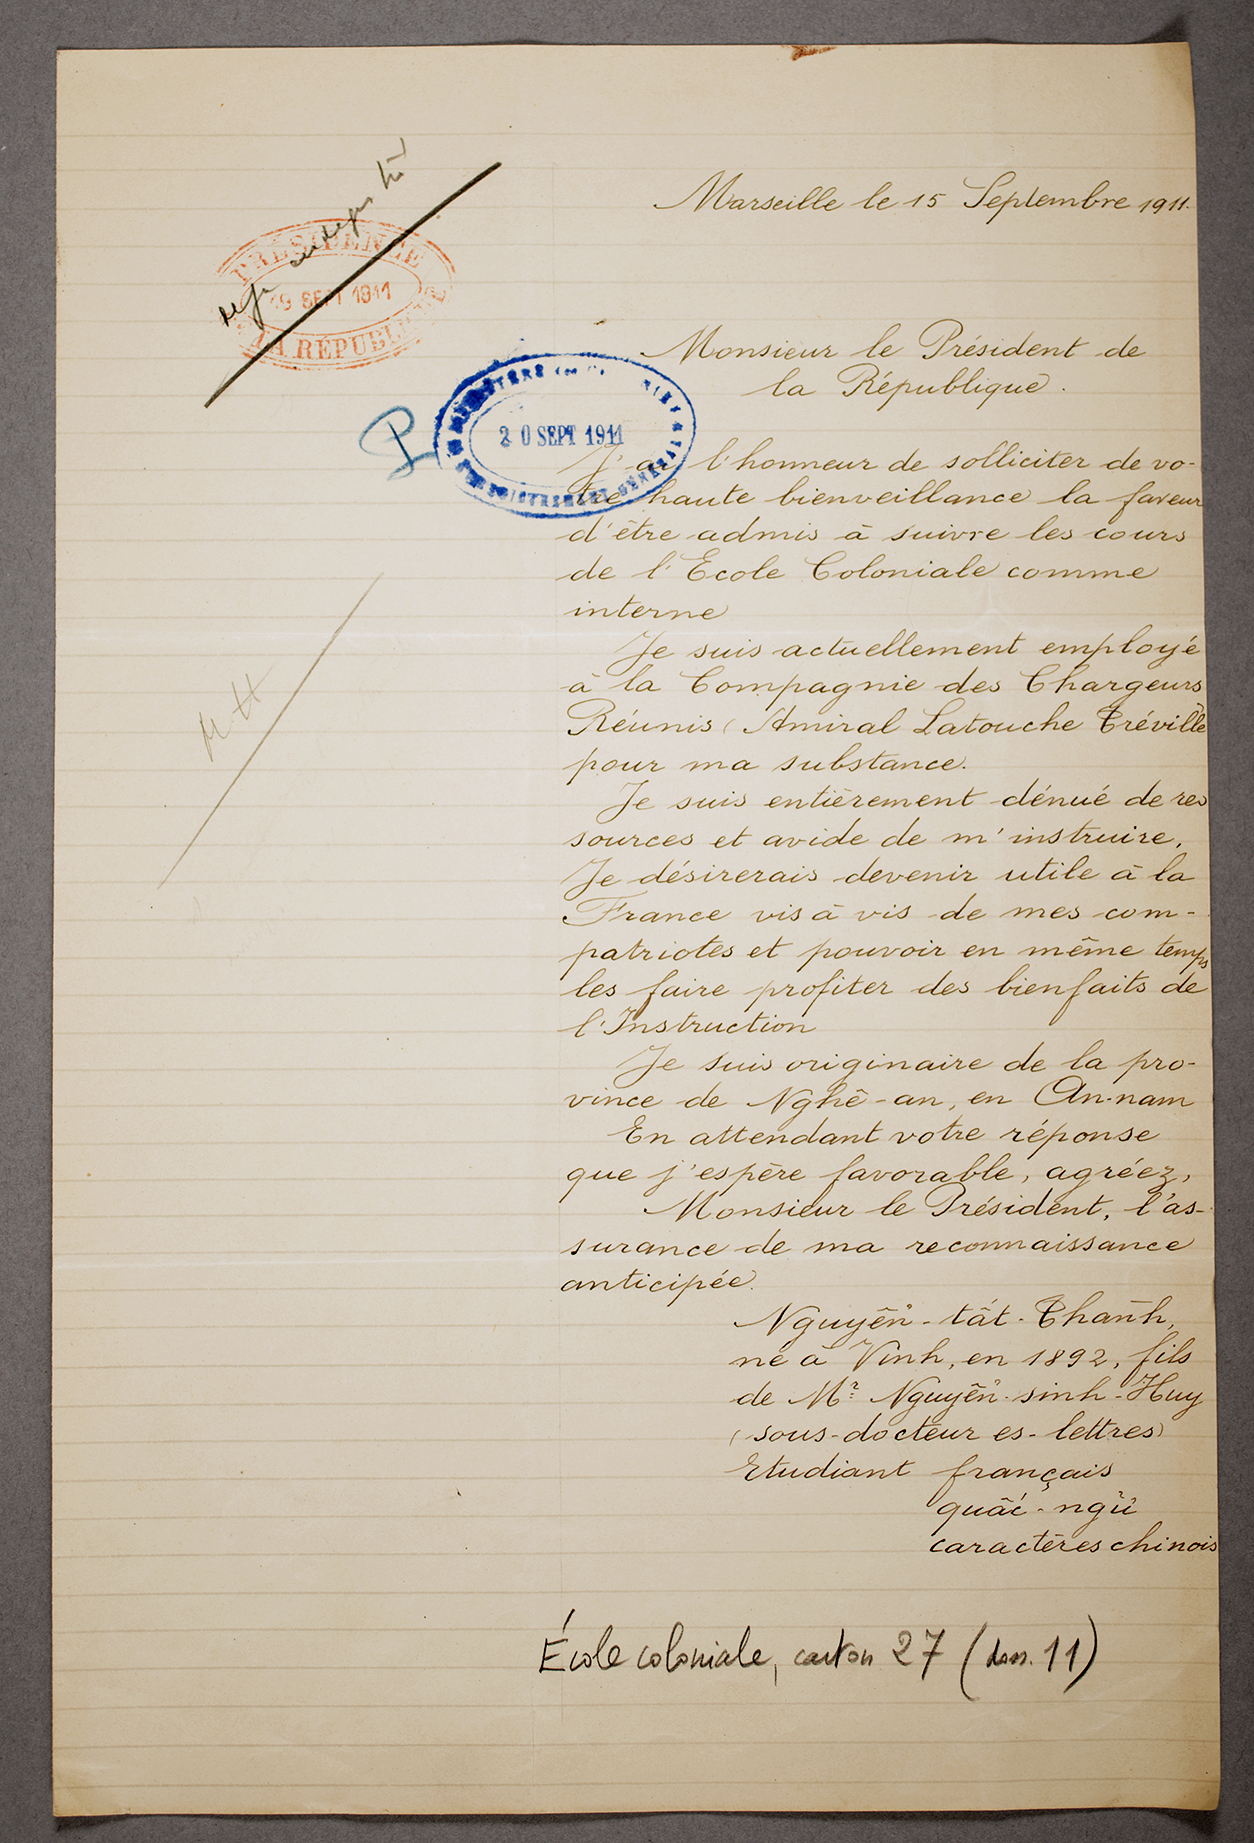 Marseille le 15 Septembre 1911.
PRÉSIDENCE
19 SEPT 1911
LA RÉPUBLIQUE
Monsieur le Président de
la République.
20 SEPT 1911
J'ai l'honneur de solliciter de vo-
tre haute bienveillance la faveur
d'être admis à suivre les cours
de l'Ecole Coloniale comme
interne
Je suis actuellement employé
à la Compagnie des Chargeurs
Réunis (Amiral Latouche Tréville
pour ma substance.
Je suis entièrement dénué de res
sources et avide de m'instruire.
Je désirerais devenir utile à la
France vis à vis de mes com-
patriotes et pouvoir en même temps
les faire profiter des bienfaits de
l'Instruction
Je suis originaire de la pro-
vince de Nghê-an, en An-nam
En attendant votre réponse
que j'espère favorable, agréez,
Monsieur le Président, l'as-
surance de ma reconnaissance
anticipée.
Nguyễn-tất-Thành,
né à Vinh, en 1892, fils
de Mr Nguyễn-sinh-Huy
(sous-docteur es-lettres)
Etudiant français
quấc-ngữ
caractères chinois
École coloniale, carton 27 (doss. 11)